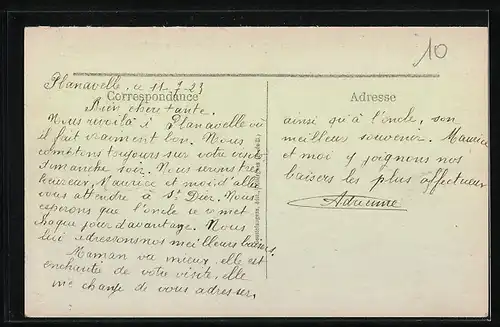 10
Planavelle, ce 11-7-23
Correspondance
Bien chère tante.
Nous revoilà à Planavelle où
il fait vraiment bon. Nous
comptons toujours sur votre visite
dimanche soir. Nous serons très
heureux, Maurice et moi d'aller
vous attendre à St Dier. Nous
espérons que l'oncle se remet
chaque jour davantage. Nous
lui adressons nos meilleurs baisers.
Maman va mieux, elle est
enchantée de votre visite, elle
me charge de vous adresser,
Adresse
ainsi qu'à l'oncle, son
meilleur souvenir. Maurice
et moi y joignons nos
baisers les plus affectueux
Adrienne